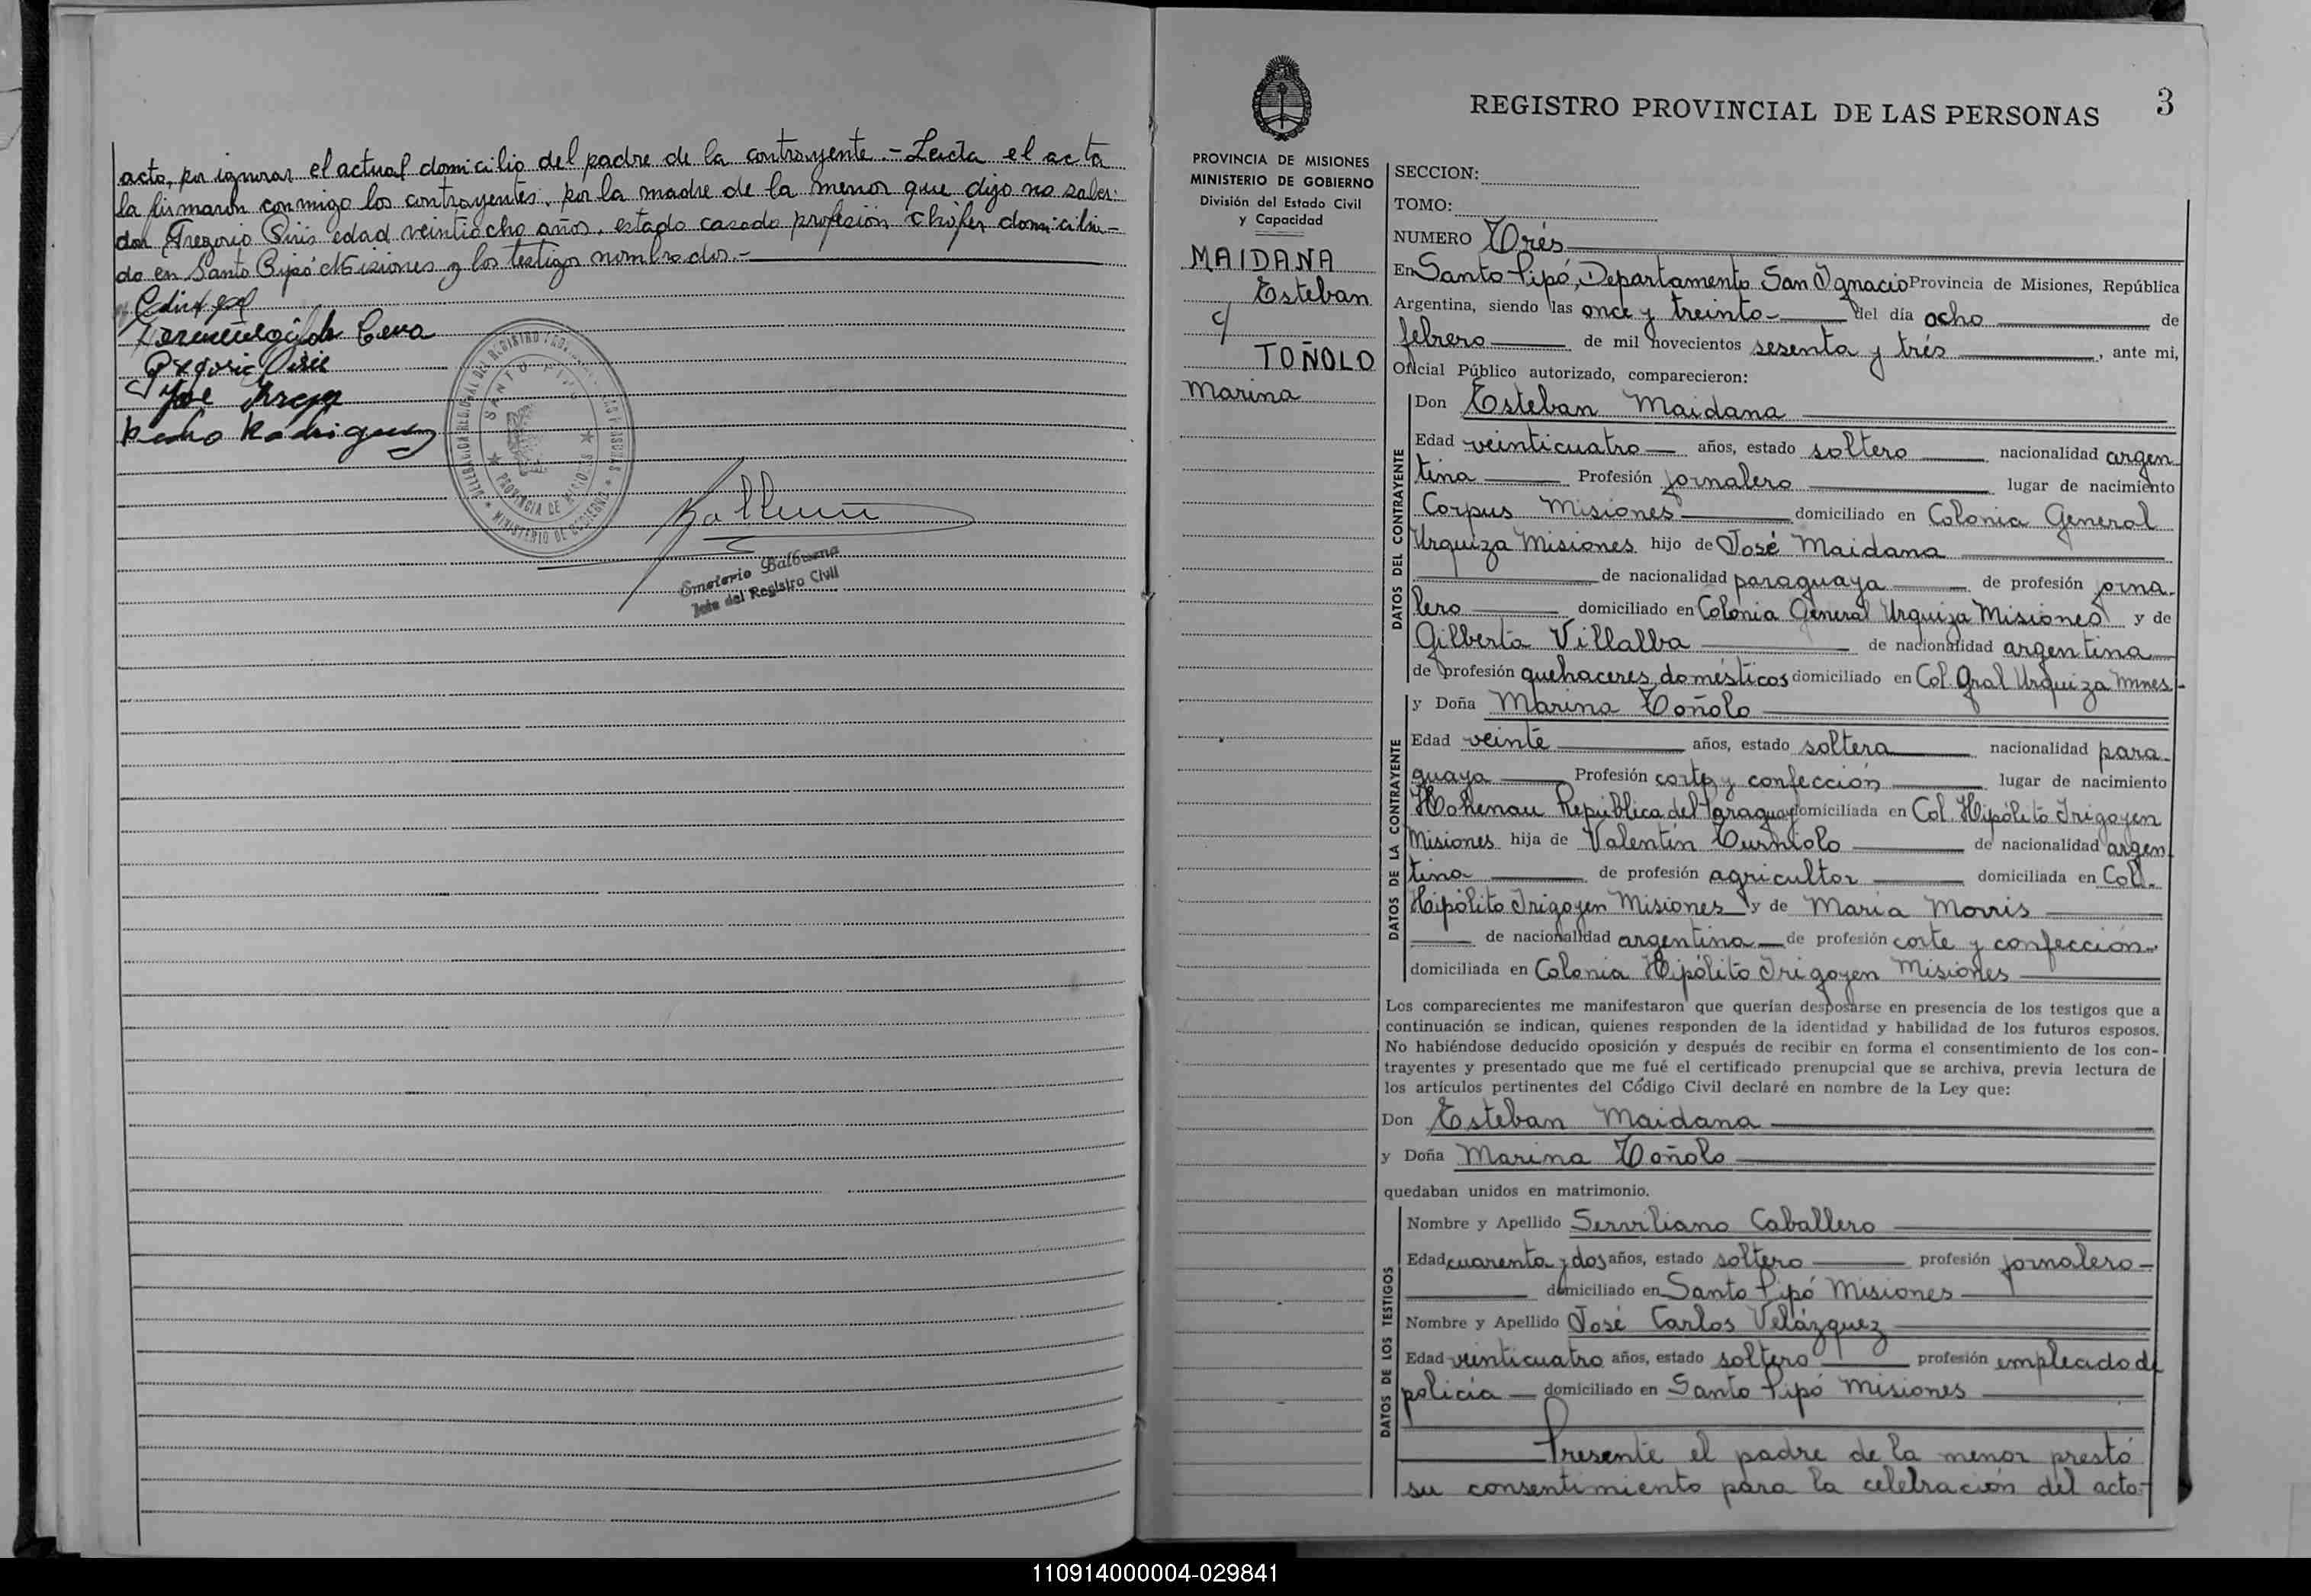 acto, por ignorar el actual domicilio del padre de la contrayente.- Leída el acta
la firmaron conmigo los contrayentes, por la madre de la menor que dijo no saber:
don Gregorio edad veintiocho años, estado casado profesión chófer domicilia-
do en Santo Pipó Misiones y los testigos nombrados.-
Pedro Rodriguez
DELEGACION REGIONAL DEL REGISTRO PROVINCIAL DE LAS PERSONAS
SANTO PIPO
PROVINCIA DE MISIONES
MINISTERIO DE GOBIERNO
Emeterio Balbuena
Jefe del Registro Civil
REGISTRO PROVINCIAL DE LAS PERSONAS 3
PROVINCIA DE MISIONES
MINISTERIO DE GOBIERNO
División del Estado Civil
y Capacidad
MAIDANA
Esteban
c/
TOÑOLO
Marina
SECCION:
TOMO:
NUMERO Trés
En Santo Pipó, Departamento San Ignacio Provincia de Misiones, República
Argentina, siendo las once y treinta del día ocho de
febrero de mil novecientos sesenta y trés, ante mi,
Oficial Público autorizado, comparecieron:
DATOS DEL CONTRAYENTE
Don Esteban Maidana
Edad veinticuatro años, estado soltero nacionalidad argen
tina Profesión jornalero lugar de nacimiento
Corpus Misiones domiciliado en Colonia General
Urquiza Misiones hijo de José Maidana
de nacionalidad paraguaya de profesión jorna-
lero domiciliado en Colonia General Urquiza Misiones y de
Gilberta Villalba de nacionalidad argentina
de profesión quehaceres domésticos domiciliado en Col. Gral Urquiza Mnes-
DATOS DE LA CONTRAYENTE
y Doña Marina Toñolo
Edad veinte años, estado soltera nacionalidad para-
guaya Profesión corte y confección lugar de nacimiento
Hohenau República del Paraguay domiciliada en Col. Hipólito Irigoyen
Misiones hija de Valentín de nacionalidad argen
tina de profesión agricultor domiciliada en Col.
Hipólito Irigoyen Misiones y de María Morris
de nacionalidad argentina de profesión corte y confección
domiciliada en Colonia Hipólito Irigoyen Misiones
Los comparecientes me manifestaron que querían desposarse en presencia de los testigos que a
continuación se indican, quienes responden de la identidad y habilidad de los futuros esposos.
No habiéndose deducido oposición y después de recibir en forma el consentimiento de los con-
trayentes y presentado que me fué el certificado prenupcial que se archiva, previa lectura de
los artículos pertinentes del Código Civil declaré en nombre de la Ley que:
Don Esteban Maidana
y Doña Marina Toñolo
quedaban unidos en matrimonio.
DATOS DE LOS TESTIGOS
Nombre y Apellido Serviliano Caballero
Edad cuarenta y dos años, estado soltero profesión jornalero
domiciliado en Santo Pipó Misiones
Nombre y Apellido José Carlos Velázquez
Edad veinticuatro años, estado soltero profesión empleado de
policía domiciliado en Santo Pipó Misiones
Presente el padre de la menor prestó
su consentimiento para la celebración del acto-
110914000004-029841